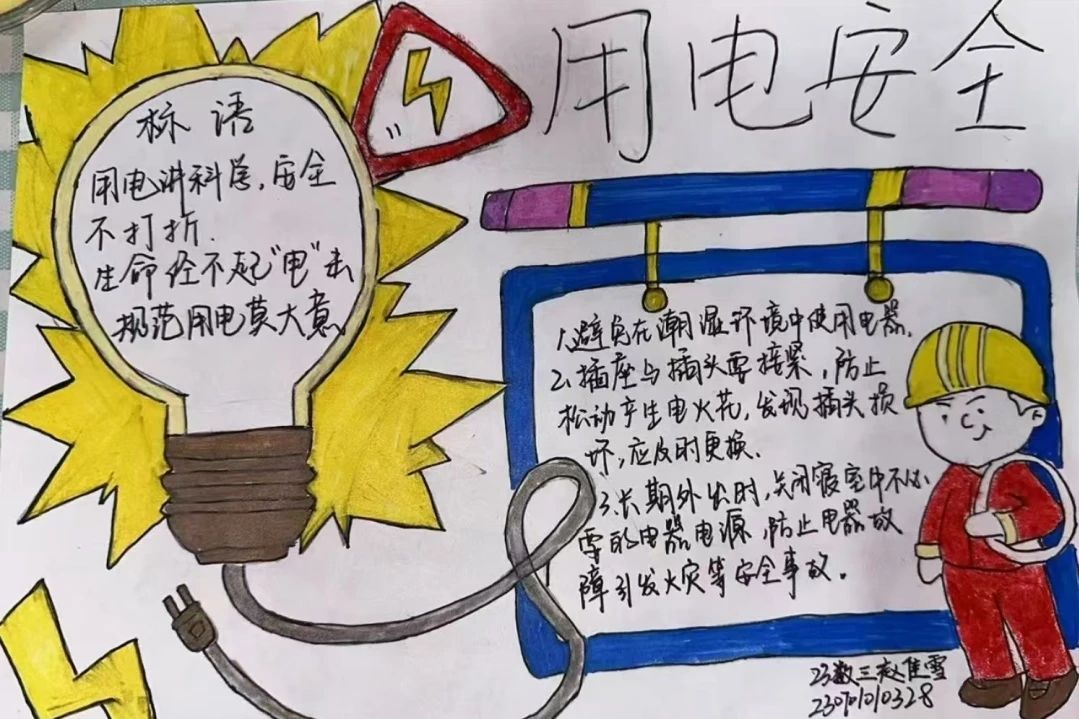 用电安全
标语
用电讲科学，安全
不打折.
生命经不起"电"击
规范用电莫大意
1.避免在潮湿环境中使用电器.
2.插座与插头要接紧，防止
松动产生电火花，发现插头损
坏，应及时更换.
3.长期外出时，关闭寝室中不必
要的电器电源，防止电器故
障引发火灾等安全事故。
23数三赵佳雪
230701010328